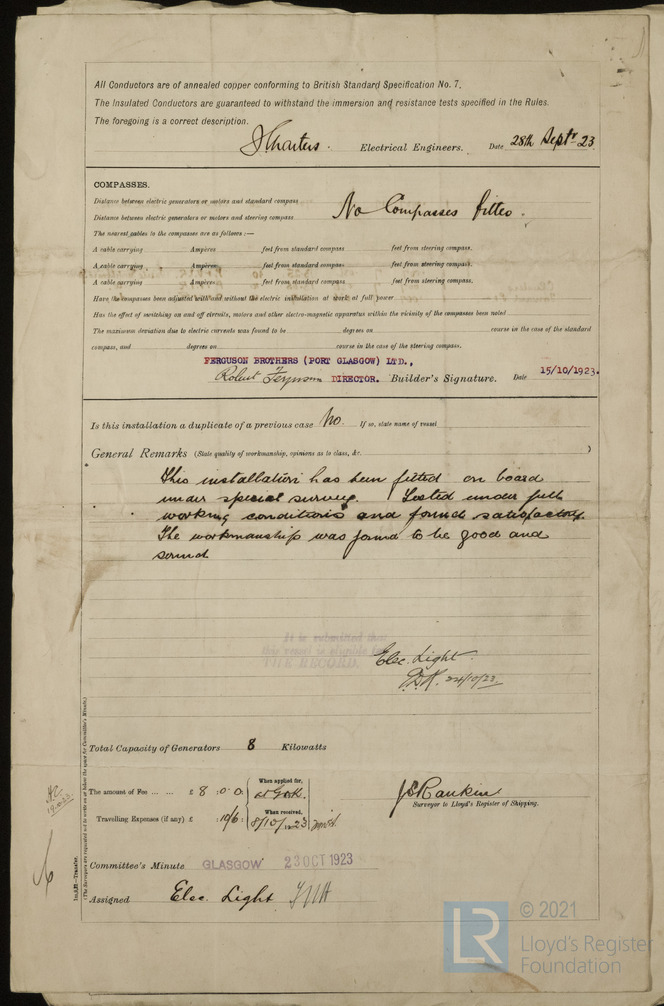 All Conductors are of annealed copper conforming to British Standard Specification No. 7.
The Insulated Conductors are guaranteed to withstand the immersion and resistance tests specified in the Rules.
The foregoing is a correct description.
Electrical Engineers. Date 28th Septr 23
COMPASSES.
Distance between electric generators or motors and standard compass
No Compasses fitted.
Distance between electric generators or motors and steering compass
The nearest cables to the compasses are as follows:—
A cable carrying Ampères feet from standard compass feet from steering compass.
A cable carrying Ampères feet from standard compass feet from steering compass.
A cable carrying Ampères feet from standard compass feet from steering compass.
Have the compasses been adjusted with and without the electric installation at work at full power
Has the effect of switching on and off circuits, motors and other electro-magnetic apparatus within the vicinity of the compasses been noted
The maximum deviation due to electric currents was found to be degrees on course in the case of the standard
compass, and degrees on course in the case of the steering compass.
FERGUSON BROTHERS (PORT GLASGOW) LTD.,
Robert Ferguson DIRECTOR. Builder's Signature. Date 15/10/1923.
Is this installation a duplicate of a previous case No. If so, state name of vessel
General Remarks (State quality of workmanship, opinions as to class, &c. )
This installation has been fitted on board
under special survey. Tested under full
working conditions and found satisfactory.
The workmanship was found to be good and
sound
It is submitted that
this vessel is eligible for
THE RECORD.
Elec. Light.
24/10/23.
Total Capacity of Generators 8 Kilowatts
The amount of Fee ... ... £ 8 : 0 : 0
When applied for,
Travelling Expenses (if any) £ : 10/6 :
When received,
8/10/1923
J S Rankin
Surveyor to Lloyd's Register of Shipping.
Committee's Minute GLASGOW 23 OCT 1923
Assigned Elec. Light
(The Surveyors are requested not to write on or below the space for Committee's Minute.)
© 2021
Lloyd's Register
Foundation
LR